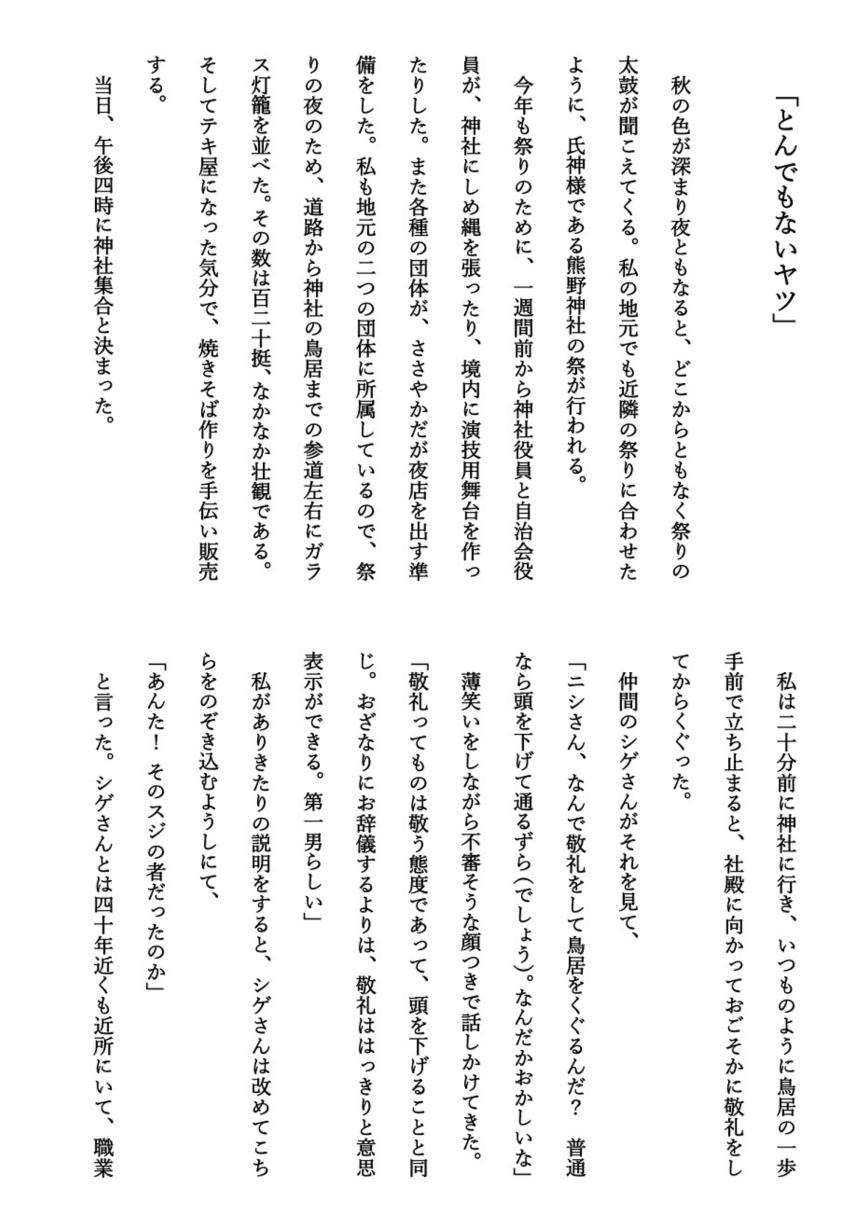 「とんでもないヤツ」
秋の色が深まり夜ともなると、どこからともなく祭りの
太鼓が聞こえてくる。私の地元でも近隣の祭りに合わせた
ように、氏神様である熊野神社の祭が行われる。
今年も祭りのために、一週間前から神社役員と自治会役
員が、神社にしめ縄を張ったり、境内に演技用舞台を作っ
たりした。また各種の団体が、ささやかだが夜店を出す準
備をした。私も地元の二つの団体に所属しているので、祭
りの夜のため、道路から神社の鳥居までの参道左右にガラ
ス灯籠を並べた。その数は百二十挺、なかなか壮観である。
そしてテキ屋になった気分で、焼きそば作りを手伝い販売
する。
当日、午後四時に神社集合と決まった。
私は二十分前に神社に行き、いつものように鳥居の一歩
手前で立ち止まると、社殿に向かっておごそかに敬礼をし
てからくぐった。
仲間のシゲさんがそれを見て、
「ニシさん、なんで敬礼をして鳥居をくぐるんだ？　普通
なら頭を下げて通るずら（でしょう）。なんだかおかしいな」
薄笑いをしながら不審そうな顔つきで話しかけてきた。
「敬礼ってものは敬う態度であって、頭を下げることと同
じ。おざなりにお辞儀するよりは、敬礼ははっきりと意思
表示ができる。第一男らしい」
私がありきたりの説明をすると、シゲさんは改めてこち
らをのぞき込むようしにて、
「あんた！　そのスジの者だったのか」
と言った。シゲさんとは四十年近くも近所にいて、職業